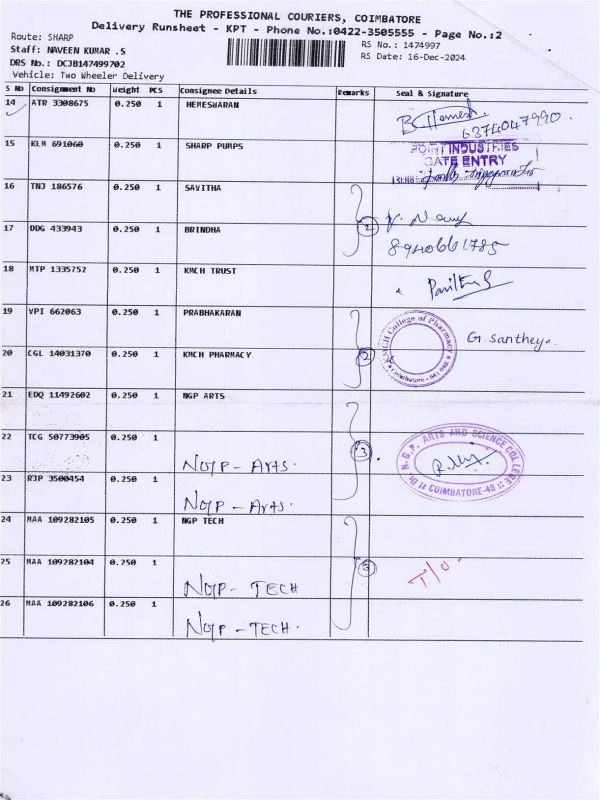 THE PROFESSIONAL COURIERS, COIMBATORE
Delivery Runsheet - KPT - Phone No.:0422-3505555 - Page No.:2
Route: SHARP
RS No.: 1474997
Staff: NAVEEN KUMAR .S
RS Date: 16-Dec-2024
DRS No.: DCJB147499702
Vehicle: Two Wheeler Delivery
S No Consignment No Weight PCS Consignee Details Remarks Seal & Signature
14 ATR 3308675 0.250 1 HEMESHARAN
6374047990
15 KLM 691060 0.250 1 SHARP PUMPS
POINT INDUSTRIES
GATE ENTRY
16 TNJ 186576 0.250 1 SAVITHA
17 DDG 433943 0.250 1 BRINDHA 2
8940661785
18 MTP 1335752 0.250 1 KMCH TRUST
19 VPI 662063 0.250 1 PRABHAKARAN
KMCH College of Pharmacy
Coimbatore - 641 048
G. Santheya.
20 CGL 14031370 0.250 1 KMCH PHARMACY 2
21 EDQ 11492602 0.250 1 NGP ARTS
22 TCG 50773905 0.250 1 NGP - Arts. 3
Dr. N.G.P. ARTS AND SCIENCE COLLEGE
COIMBATORE-48
23 RJP 3500454 0.250 1 NGP - Arts.
24 MAA 109282105 0.250 1 NGP TECH
25 MAA 109282104 0.250 1 NGP - TECH 3
T/O.
26 MAA 109282106 0.250 1 NGP - TECH.